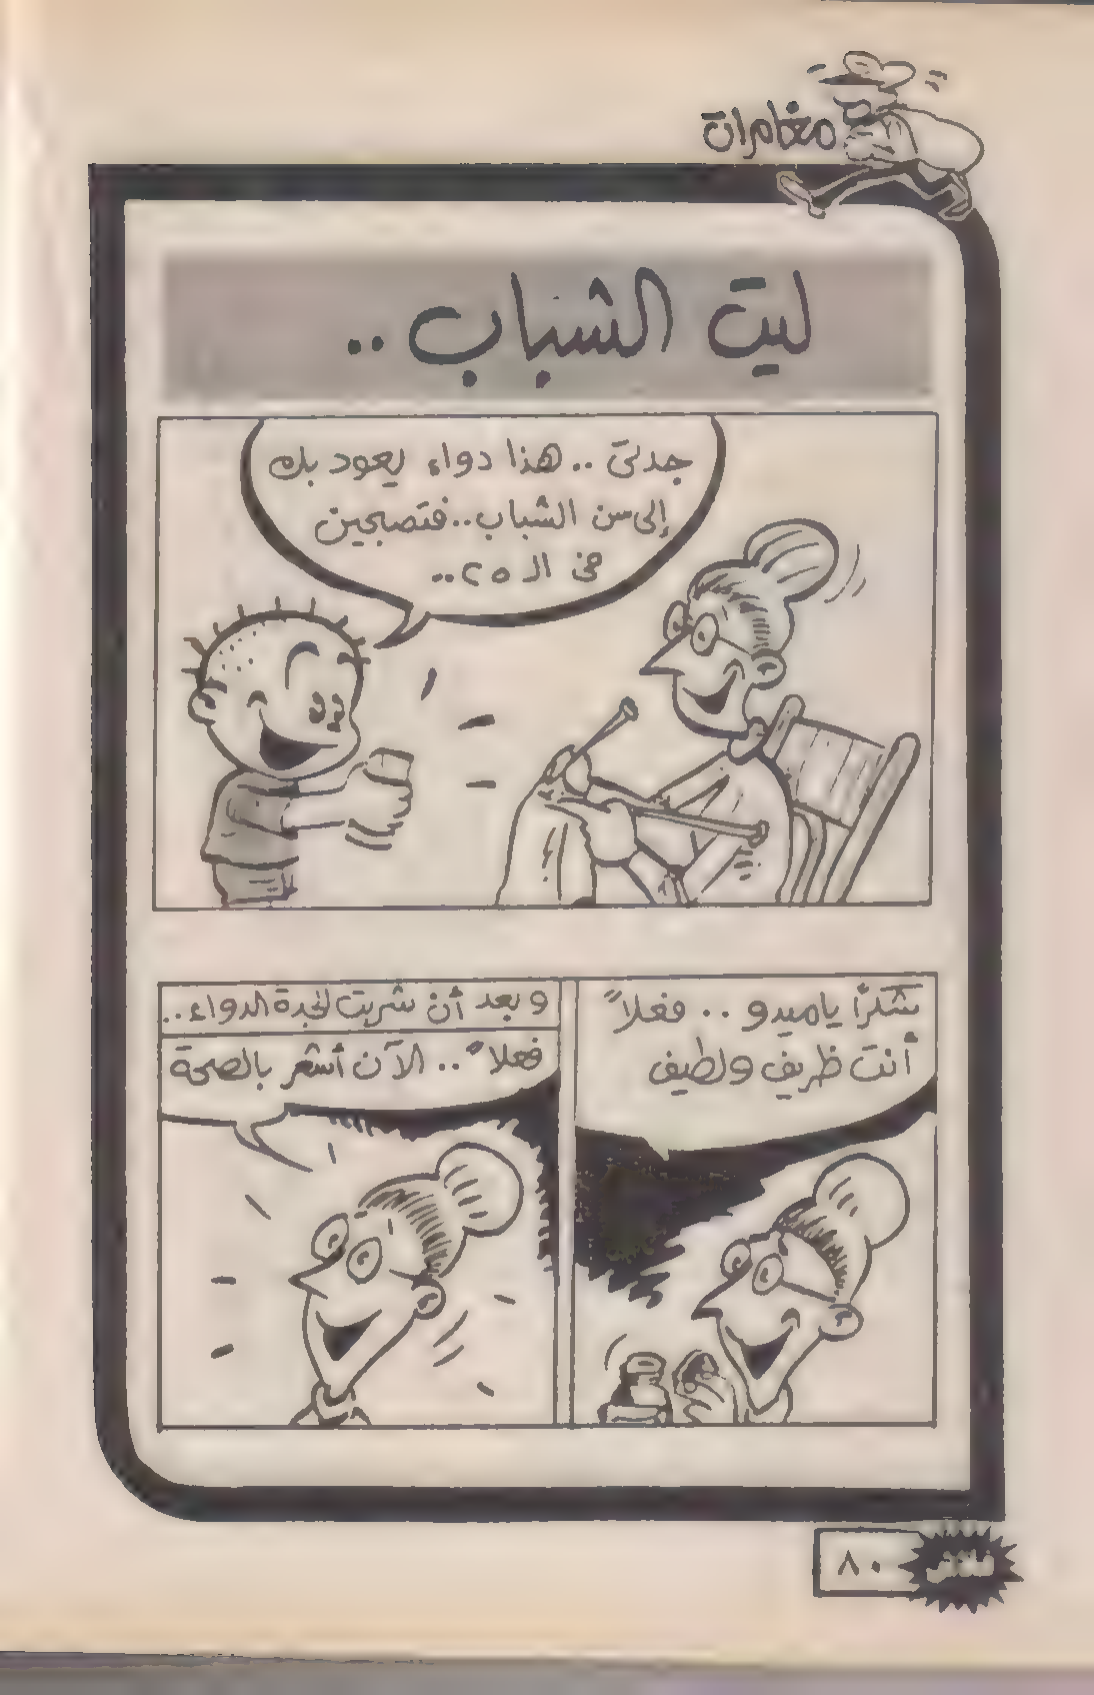 مغامرات
ليت الشباب..
جدتى .. هذا دواء يعود بك
إلى سن الشباب.. فتصبحين
فى الـ ٢٥..
شكرًا ياميدو .. فعلاً
أنت ظريف ولطيف
وبعد أن شربت الجدة الدواء..
فعلاً .. الآن أشعر بالصحة
فلاش
٨٠